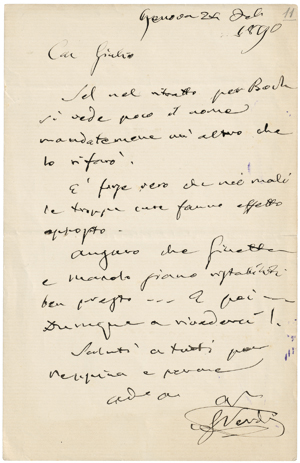 Genova 24 Dec
1890
11
Car Giulio
Se nel ritratto per Bach
si vede poco il nome
mandatemene un' altro che
lo rifarò.
E' forse vero che nei mali
le troppe cure fanno effetto
opposto.
Auguro che Ginetta
e Manolo siano ristabiliti
ben presto --- E poi --
Dunque a rivederci!..
Saluti a tutti per
Peppina e per me
G Verdi